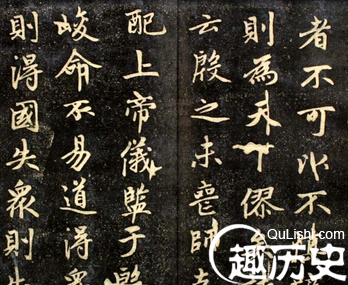 者不可以不慎
則為天下僇
云殷之未喪師克
配上帝儀監于殷
峻命不易道得眾
則得國失眾則失
QuLishi.com
趣历史